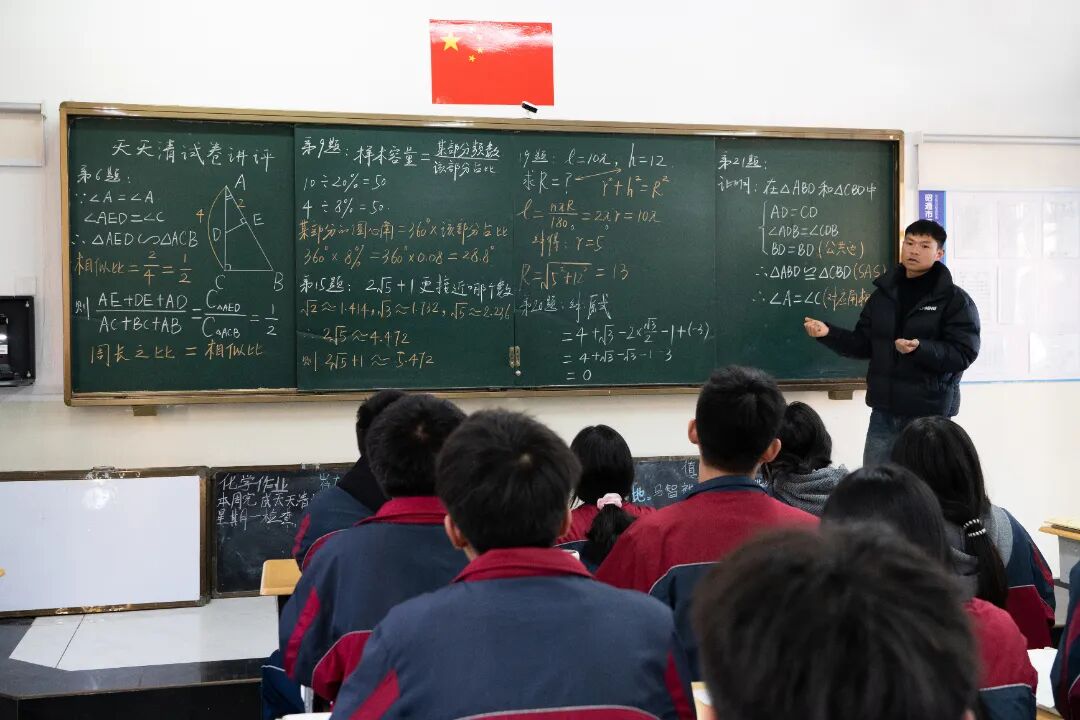 天天清试卷讲评
第6题：
∵∠A=∠A
∠AED=∠C
∴△AED∽△ACB
相似比=2/4=1/2
则 (AE+DE+AD)/(AC+BC+AB)=C△AED/C△ACB=1/2
周长之比=相似比
A
4
2
E
D
C
B
第9题：样本容量=某部分频数/该部分占比
10÷20%=50
4÷8%=50.
某部分的圆心角=360°×该部分占比
360°×8%=360°×0.08=28.8°
第15题：2√5+1更接近哪个数
√2≈1.414,√3≈1.732,√5≈2.236
∴2√5≈4.472
则2√5+1≈5.472
19题：l=10π，h=12.
求R=？ r²+h²=R²
l=nπR/180=2πr=10π
解得：r=5
R=√(5²+12²)=13
第20题：解：原式
=4+√3-2×√3/2-1+(-3)
=4+√3-√3-1-3
=0
第21题：
证明：在△ABD和△CBD中
AD=CD
∠ADB=∠CDB
BD=BD(公共边)
∴△ABD≌△CBD(SAS)
∴∠A=∠C(对应角
昭通市
化学作业
本周完成天天清
星期一检查